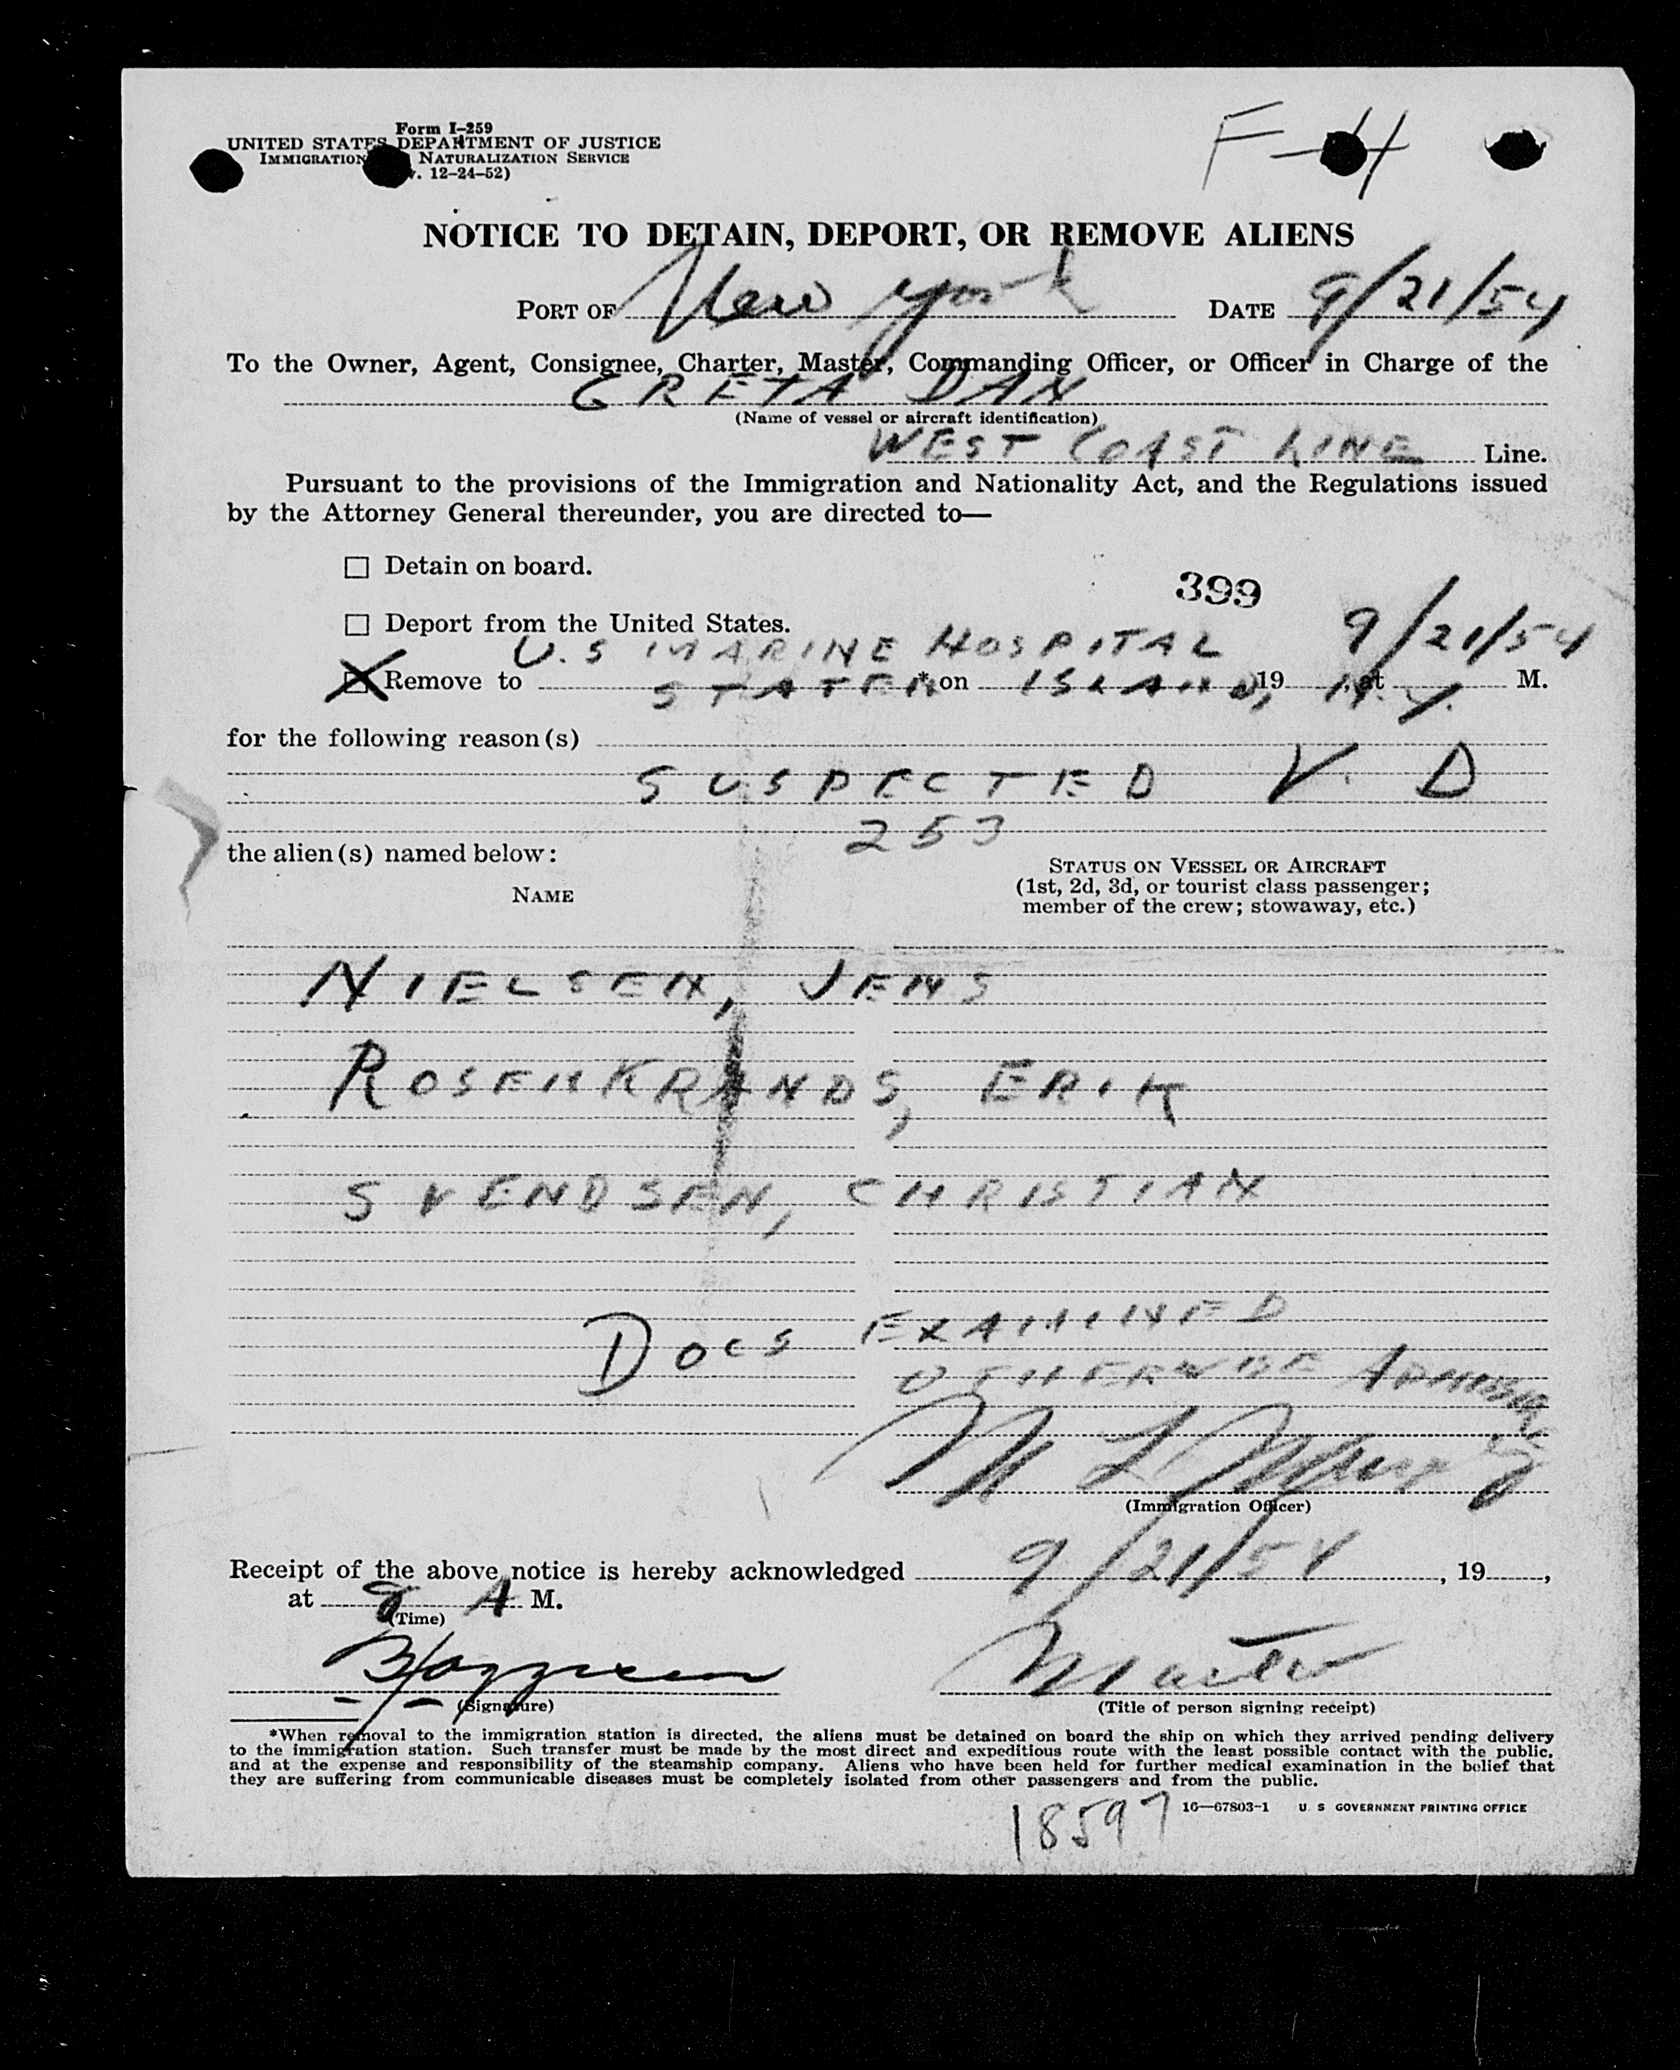 Form I-259
UNITED STATES DEPARTMENT OF JUSTICE
IMMIGRATION NATURALIZATION SERVICE
12-24-52)
F-H
NOTICE TO DETAIN, DEPORT, OR REMOVE ALIENS
PORT OF New York DATE 9/21/54
To the Owner, Agent, Consignee, Charter, Master, Commanding Officer, or Officer in Charge of the
GRETA DAN
(Name of vessel or aircraft identification)
WEST COAST LINE Line.
Pursuant to the provisions of the Immigration and Nationality Act, and the Regulations issued
by the Attorney General thereunder, you are directed to—
☐ Detain on board.
399
☐ Deport from the United States.
U.S MARINE HOSPITAL 9/21/54
☒ Remove to STATEN * on ISLAND, 19 at N.Y. M.
for the following reason(s)
SUSPECTED V. D
253
the alien(s) named below:
NAME
STATUS ON VESSEL OR AIRCRAFT
(1st, 2d, 3d, or tourist class passenger;
member of the crew; stowaway, etc.)
NIELSEN, JENS
ROSENKRANDS, ERIK
SVENDSEN, CHRISTIAN
DOCS EXAMINED
OTHERWISE
(Immigration Officer)
Receipt of the above notice is hereby acknowledged 9/21/54, 19 ,
at 9 A M.
(Time)
Master
(Signature)
(Title of person signing receipt)
*When removal to the immigration station is directed, the aliens must be detained on board the ship on which they arrived pending delivery
to the immigration station. Such transfer must be made by the most direct and expeditious route with the least possible contact with the public,
and at the expense and responsibility of the steamship company. Aliens who have been held for further medical examination in the belief that
they are suffering from communicable diseases must be completely isolated from other passengers and from the public.
18597
16—67803-1 U S GOVERNMENT PRINTING OFFICE